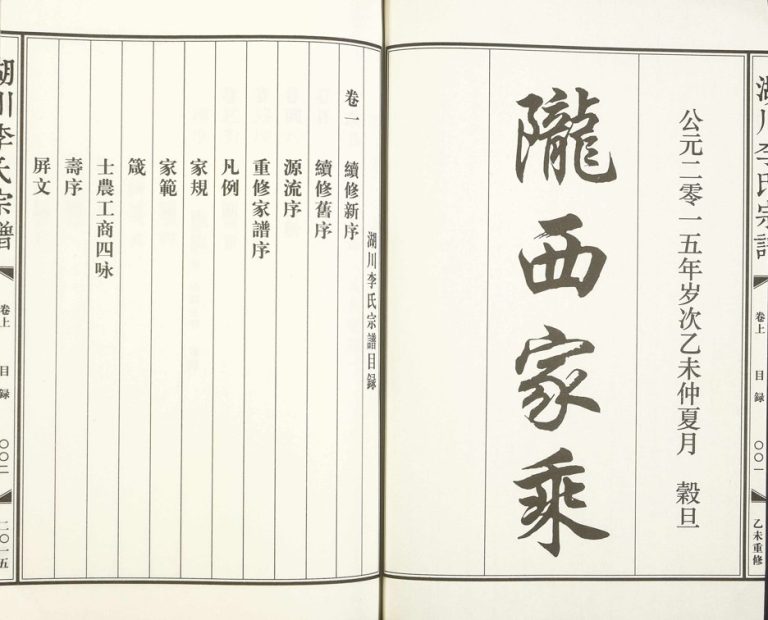 湖川李氏宗譜
卷上
目録
〇〇一
乙未重修
公元二零一五年岁次乙未仲夏月 穀旦
隴西家乘
湖川李氏宗譜目録
卷一 續修新序
續修舊序
源流序
重修家譜序
凡例
家規
家範
箴
士農工商四咏
壽序
屏文
湖川李氏宗譜
卷上
目録
〇〇二
二〇一五